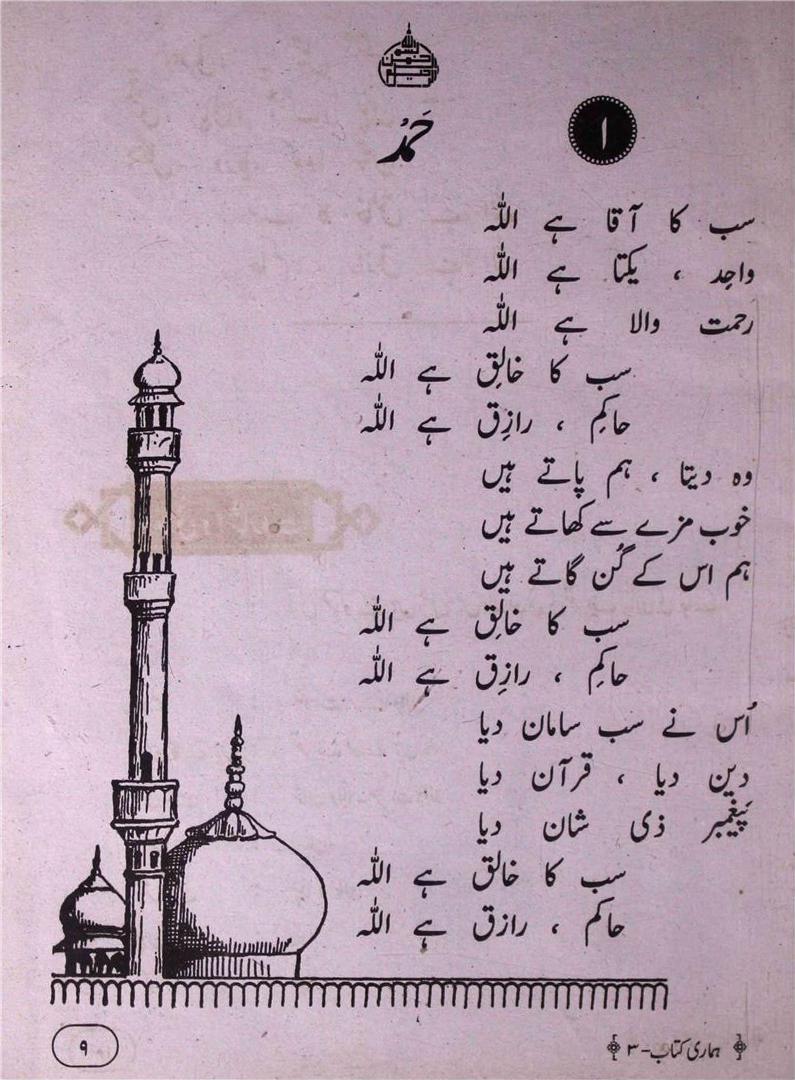 بسم اللہ الرحمن الرحیم
۱
حَمْدُ
سب کا آقا ہے اللہ
واحِد ، یکتا ہے اللہ
رحمت والا ہے اللہ
سب کا خالِق ہے اللہ
حاکِم ، رازِق ہے اللہ
وہ دیتا ، ہم پاتے ہیں
خوب مزے سے کھاتے ہیں
ہم اس کے گُن گاتے ہیں
سب کا خالِق ہے اللہ
حاکِم ، رازِق ہے اللہ
اُس نے سب سامان دیا
دین دیا ، قرآن دیا
پَیغمبر ذی شان دیا
سب کا خالق ہے اللہ
حاکم ، رازق ہے اللہ
ہماری کتاب - ۳
۹